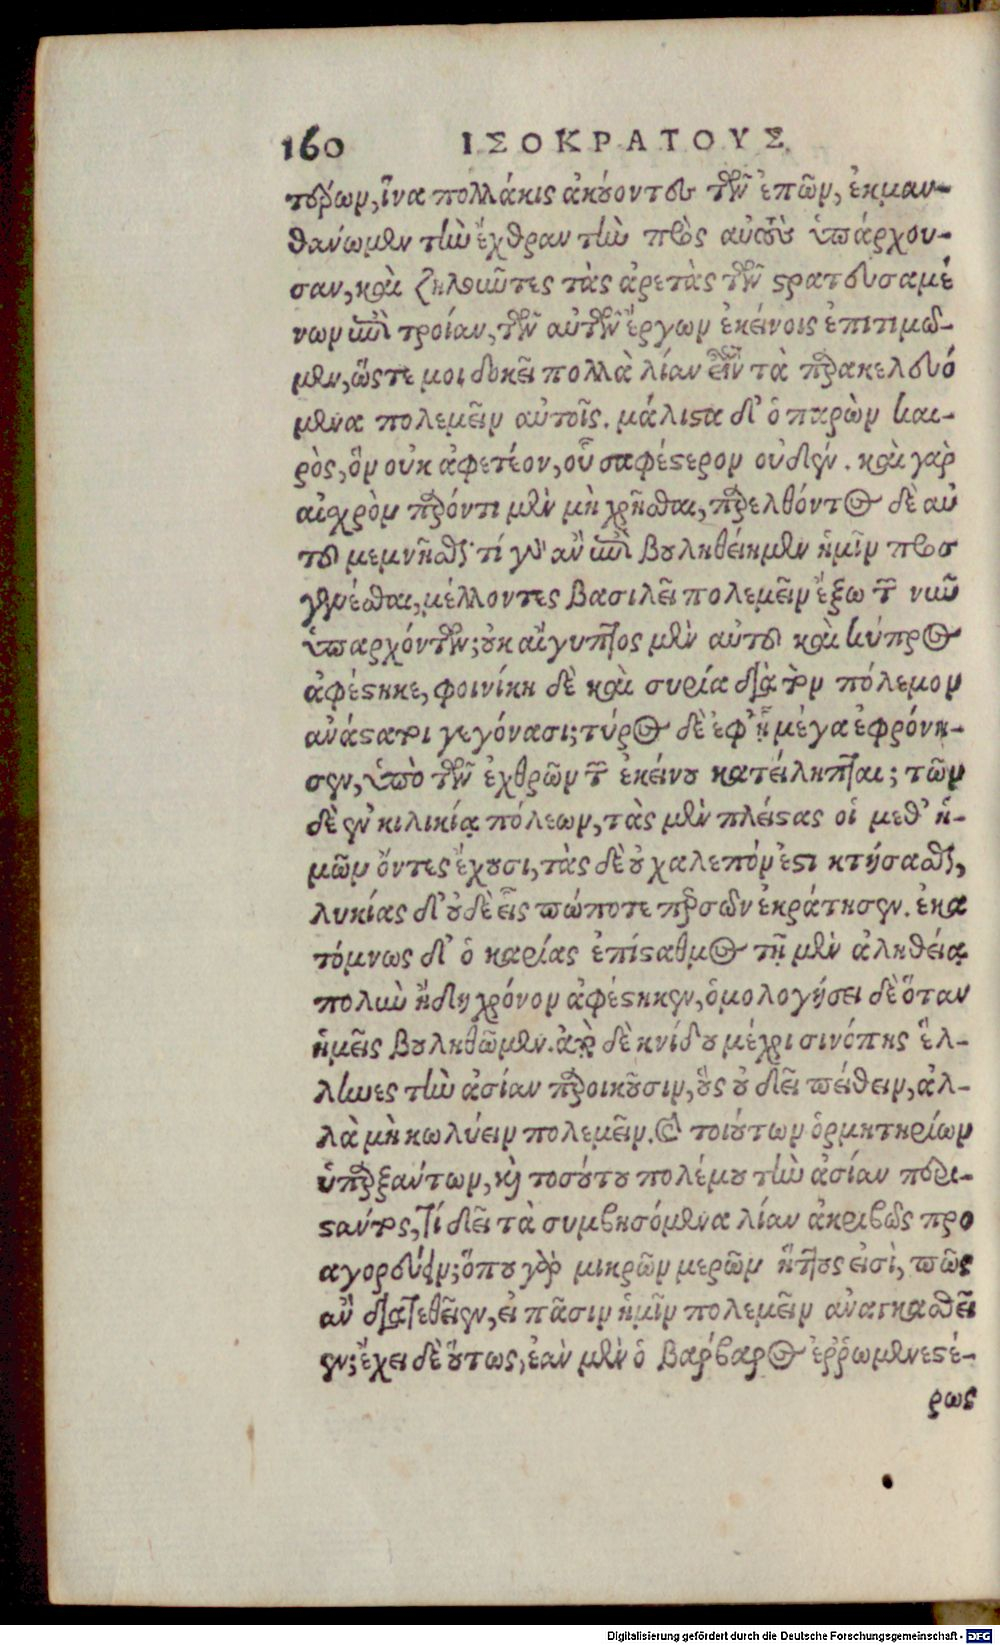 160 ΙΣΟΚΡΑΤΟΥΣ
τέρων, ἵνα πολλάκις ἀκούοντες τῶν ἐπῶν, ἐκμαν-
θάνωμεν τὴν ἔχθραν τὴν πρὸς αὐτοὺς ὑπάρχου-
σαν, καὶ ζηλοῦντες τὰς ἀρετὰς τῶν στρατευσαμέ
νων ἐπὶ τροίαν, τῶν αὐτῶν ἔργων ἐκείνοις ἐπιτιμῶ-
μεν, ὥστε μοι δοκεῖ πολλὰ λίαν εἶναι τὰ παρακελευό
μενα πολεμεῖν αὐτοῖς. μάλιστα δ' ὁ παρὼν και-
ρὸς, ὃν οὐκ ἀφετέον, οὗ σαφέστερον οὐδέν. καὶ γὰρ
αἰσχρὸν παρόντι μὲν μὴ χρῆσθαι, παρελθόντος δὲ αὐ
τοῦ μεμνῆσθαι· τί γὰρ ἂν ἐπὶ βουληθείημεν ἡμῖν προσ
γενέσθαι, μέλλοντες βασιλεῖ πολεμεῖν ἔξω τῶν νῦν
ὑπαρχόντων; οὐκ αἴγυπτος μὲν αὐτοῦ καὶ κύπρος
ἀφέστηκε, φοινίκη δὲ καὶ συρία διὰ τὸν πόλεμον
ἀνάστατοι γεγόνασι; τύρος δὲ ἐφ' ᾗ μέγα ἐφρόνη-
σεν, ὑπὸ τῶν ἐχθρῶν τῶν ἐκείνου κατείληπται; τῶν
δὲ ἐν κιλικίᾳ πόλεων, τὰς μὲν πλείστας οἱ μεθ' ἡ-
μῶν ὄντες ἔχουσι, τὰς δὲ οὐ χαλεπόν ἐστι κτήσασθαι,
λυκίας δ' οὐδὲ εἷς πώποτε περσῶν ἐκράτησεν. ἑκα
τόμνως δ' ὁ καρίας ἐπίσταθμος τῇ μὲν ἀληθείᾳ
πολὺν ἤδη χρόνον ἀφέστηκεν, ὁμολογήσει δὲ ὅταν
ἡμεῖς βουληθῶμεν. ἀπὸ δὲ κνίδου μέχρι σινόπης ἕλ-
ληνες τὴν ἀσίαν παροικοῦσιν, οὓς οὐ δεῖ πείθειν, ἀλ-
λὰ μὴ κωλύειν πολεμεῖν. καὶ τοιούτων ὁρμητηρίων
ὑπαρξάντων, καὶ τοσούτου πολέμου τὴν ἀσίαν περι-
στάντος, τί δεῖ τὰ συμβησόμενα λίαν ἀκριβῶς προ
αγορεύειν; ὅπου γὰρ μικρῶν μερῶν ἥττους εἰσὶ, πῶς
ἂν διατεθεῖεν, εἰ πᾶσιν ἡμῖν πολεμεῖν ἀναγκασθεῖ
εν; ἔχει δὲ οὕτως, ἐὰν μὲν ὁ βάρβαρος ἐῤῥωμενεστέ-
ρως
Digitalisierung gefördert durch die Deutsche Forschungsgemeinschaft - DFG